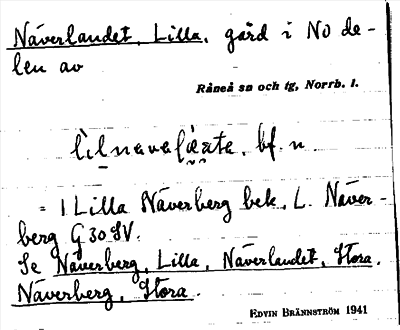 Näverlandet, Lilla, gård i NO de-
len av
Råneå sn och tg, Norrb. l.
bf. n.
= 1 Lilla Näverberg bek. L. Näver-
berg G 30 SV.
Se Näverberg, Lilla, Näverlandet, Stora,
Näverberg, Stora.
EDVIN BRÄNNSTRÖM 1941